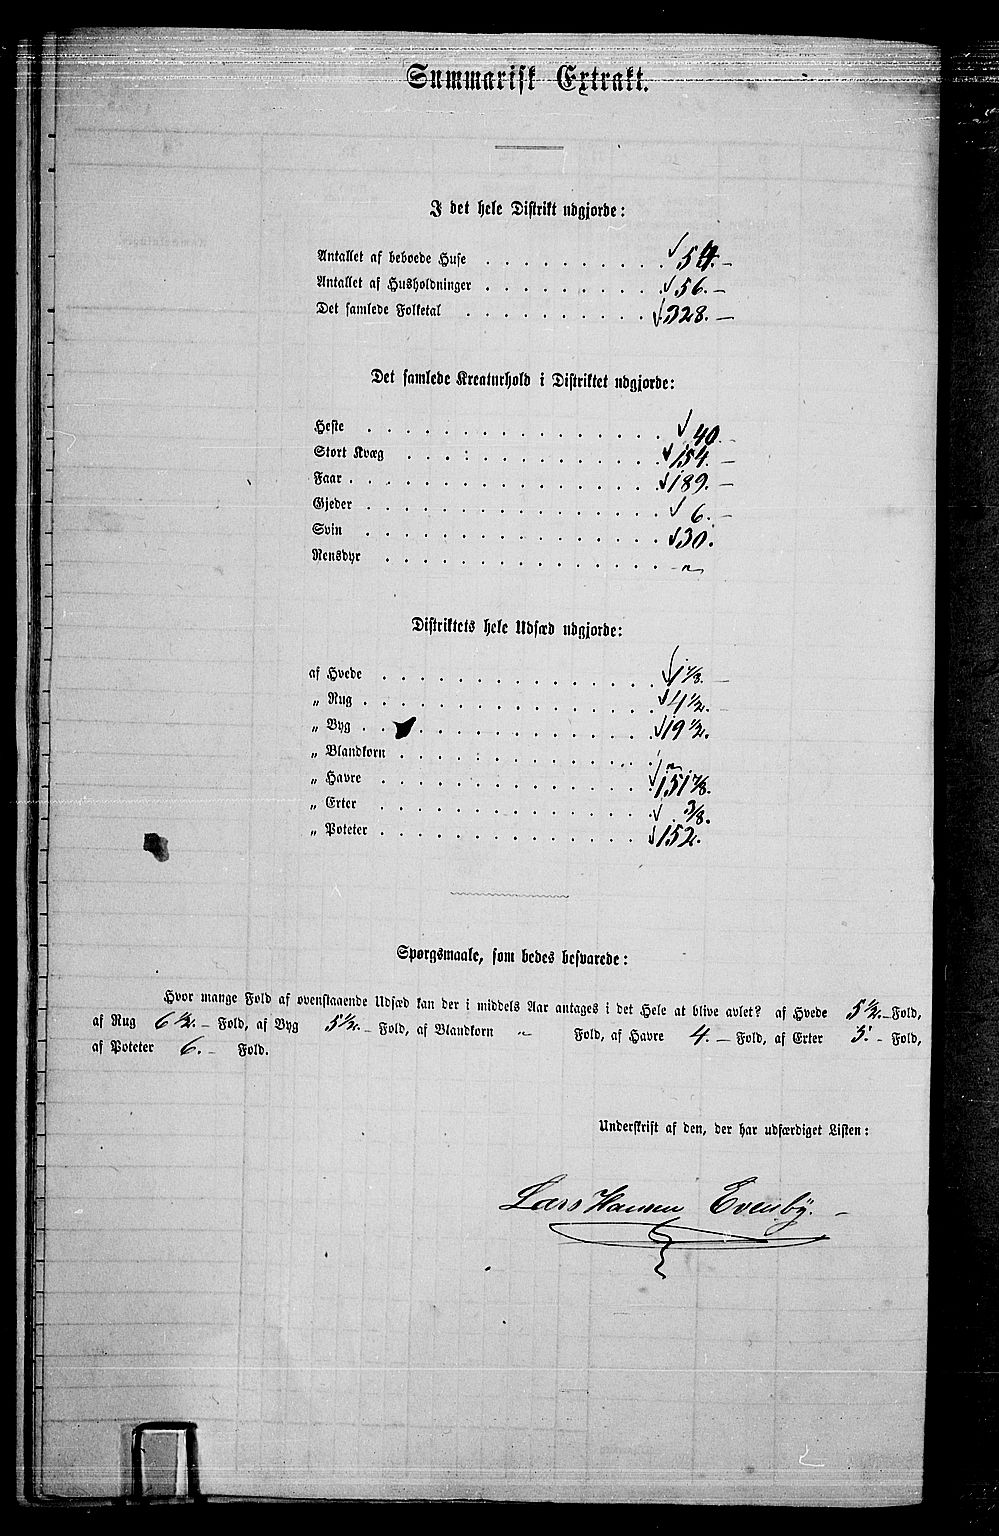 Summarisk Extrakt.
I det hele Distrikt udgjorde:
Antallet af beboede Huse . . . . . . . . . . 54. –
Antallet af Husholdninger . . . . . . . . . . 56. –
Det samlede Folketal . . . . . . . . . . 328. –
Det samlede Kreaturhold i Distriktet udgjorde:
Heste . . . . . . . . . . 40. –
Stort Kvæg . . . . . . . . . . 154. –
Faar . . . . . . . . . . 189. –
Gjeder . . . . . . . . . . 6. –
Svin . . . . . . . . . . 30.
Rensdyr . . . . . . . . . . "
Distriktets hele Udsæd udgjorde:
af Hvede . . . . . . . . . . –
„ Rug . . . . . . . . . . 4 1/2.
„ Byg . . . . . . . . . . 19 1/2.
„ Blandkorn . . . . . . . . . . "
„ Havre . . . . . . . . . . 151 7/8.
„ Erter . . . . . . . . . . 3/8.
„ Poteter . . . . . . . . . . 152.
Spørgsmaale, som bedes besvarede:
Hvor mange Fold af ovenstaaende Udsæd kan der i middels Aar antages i det Hele at blive avlet? af Hvede 5 1/2. – Fold,
af Rug 6 1/2. – Fold, af Byg 5 1/2. – Fold, af Blandkorn " Fold, af Havre 4. – Fold, af Erter – Fold,
af Poteter 6. – Fold.
Underskrift af den, der har udfærdiget Listen:
Lars Hansen Evenby. –